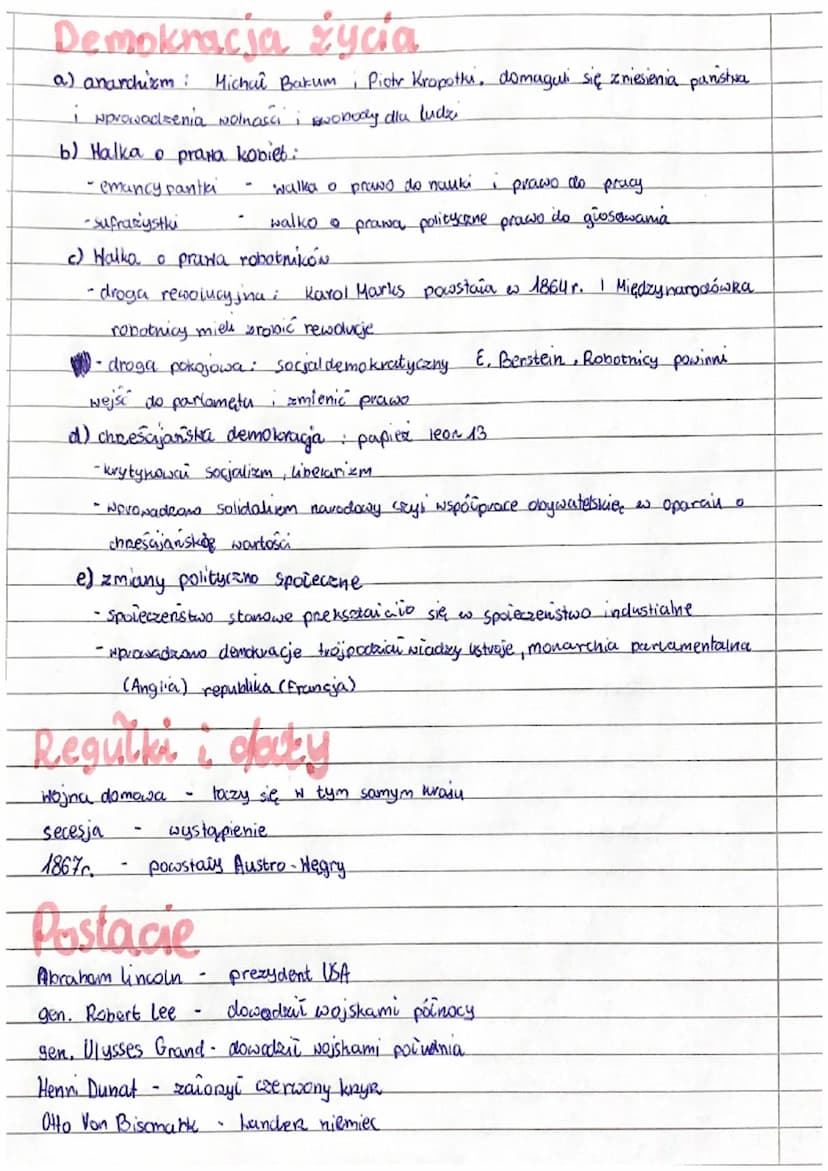 Demokracja życia
a) anarchizm : Michał Bakum i Piotr Kropotki. domagali się zniesienia państwa
i wprowadzenia wolności i swobody dla ludzi
b) Walka o prawa kobiet:
- emancypantki - walka o prawo do nauki i prawo do pracy
- sufrażystki - walko o prawa polityczne prawo do głosowania
c) Walka o prawa robotników
- droga rewolucyjna : Karol Marks powstała w 1864r. I Międzynarodówka
robotnicy mieli zrobić rewolucje
- droga pokojowa : socjaldemokratyczny E. Berstein . Robotnicy powinni
wejść do parlamętu i zmienić prawo
d) chrześcijańska demokracja : papież leon 13
- krytykował socjalizm , liberarizm
- wprowadzono solidaryzm narodowy czyli współprace obywatelskię w oparciu o
chrześcijańskie wartości
e) zmiany polityczno społeczne
- społeczeństwo stanowe przekształciło się w społeczeństwo industialne
- wprowadzono demokracje trójpodział władzy ustroje , monarchia parlamentalna
(Anglia) republika (Francja)
Regułki i daty
wojna domowa - toczy się w tym samym kraju
secesja - wystąpienie
1867r. - powstały Austro-Węgry
Postacie
Abraham Lincoln - prezydent USA
gen. Robert Lee - dowodził wojskami północy
gen. Ulysses Grand - dowodził wojskami południa
Henri Dunat - założył czerwony krzyż
Otto Von Biscmark - kanclerz niemiec